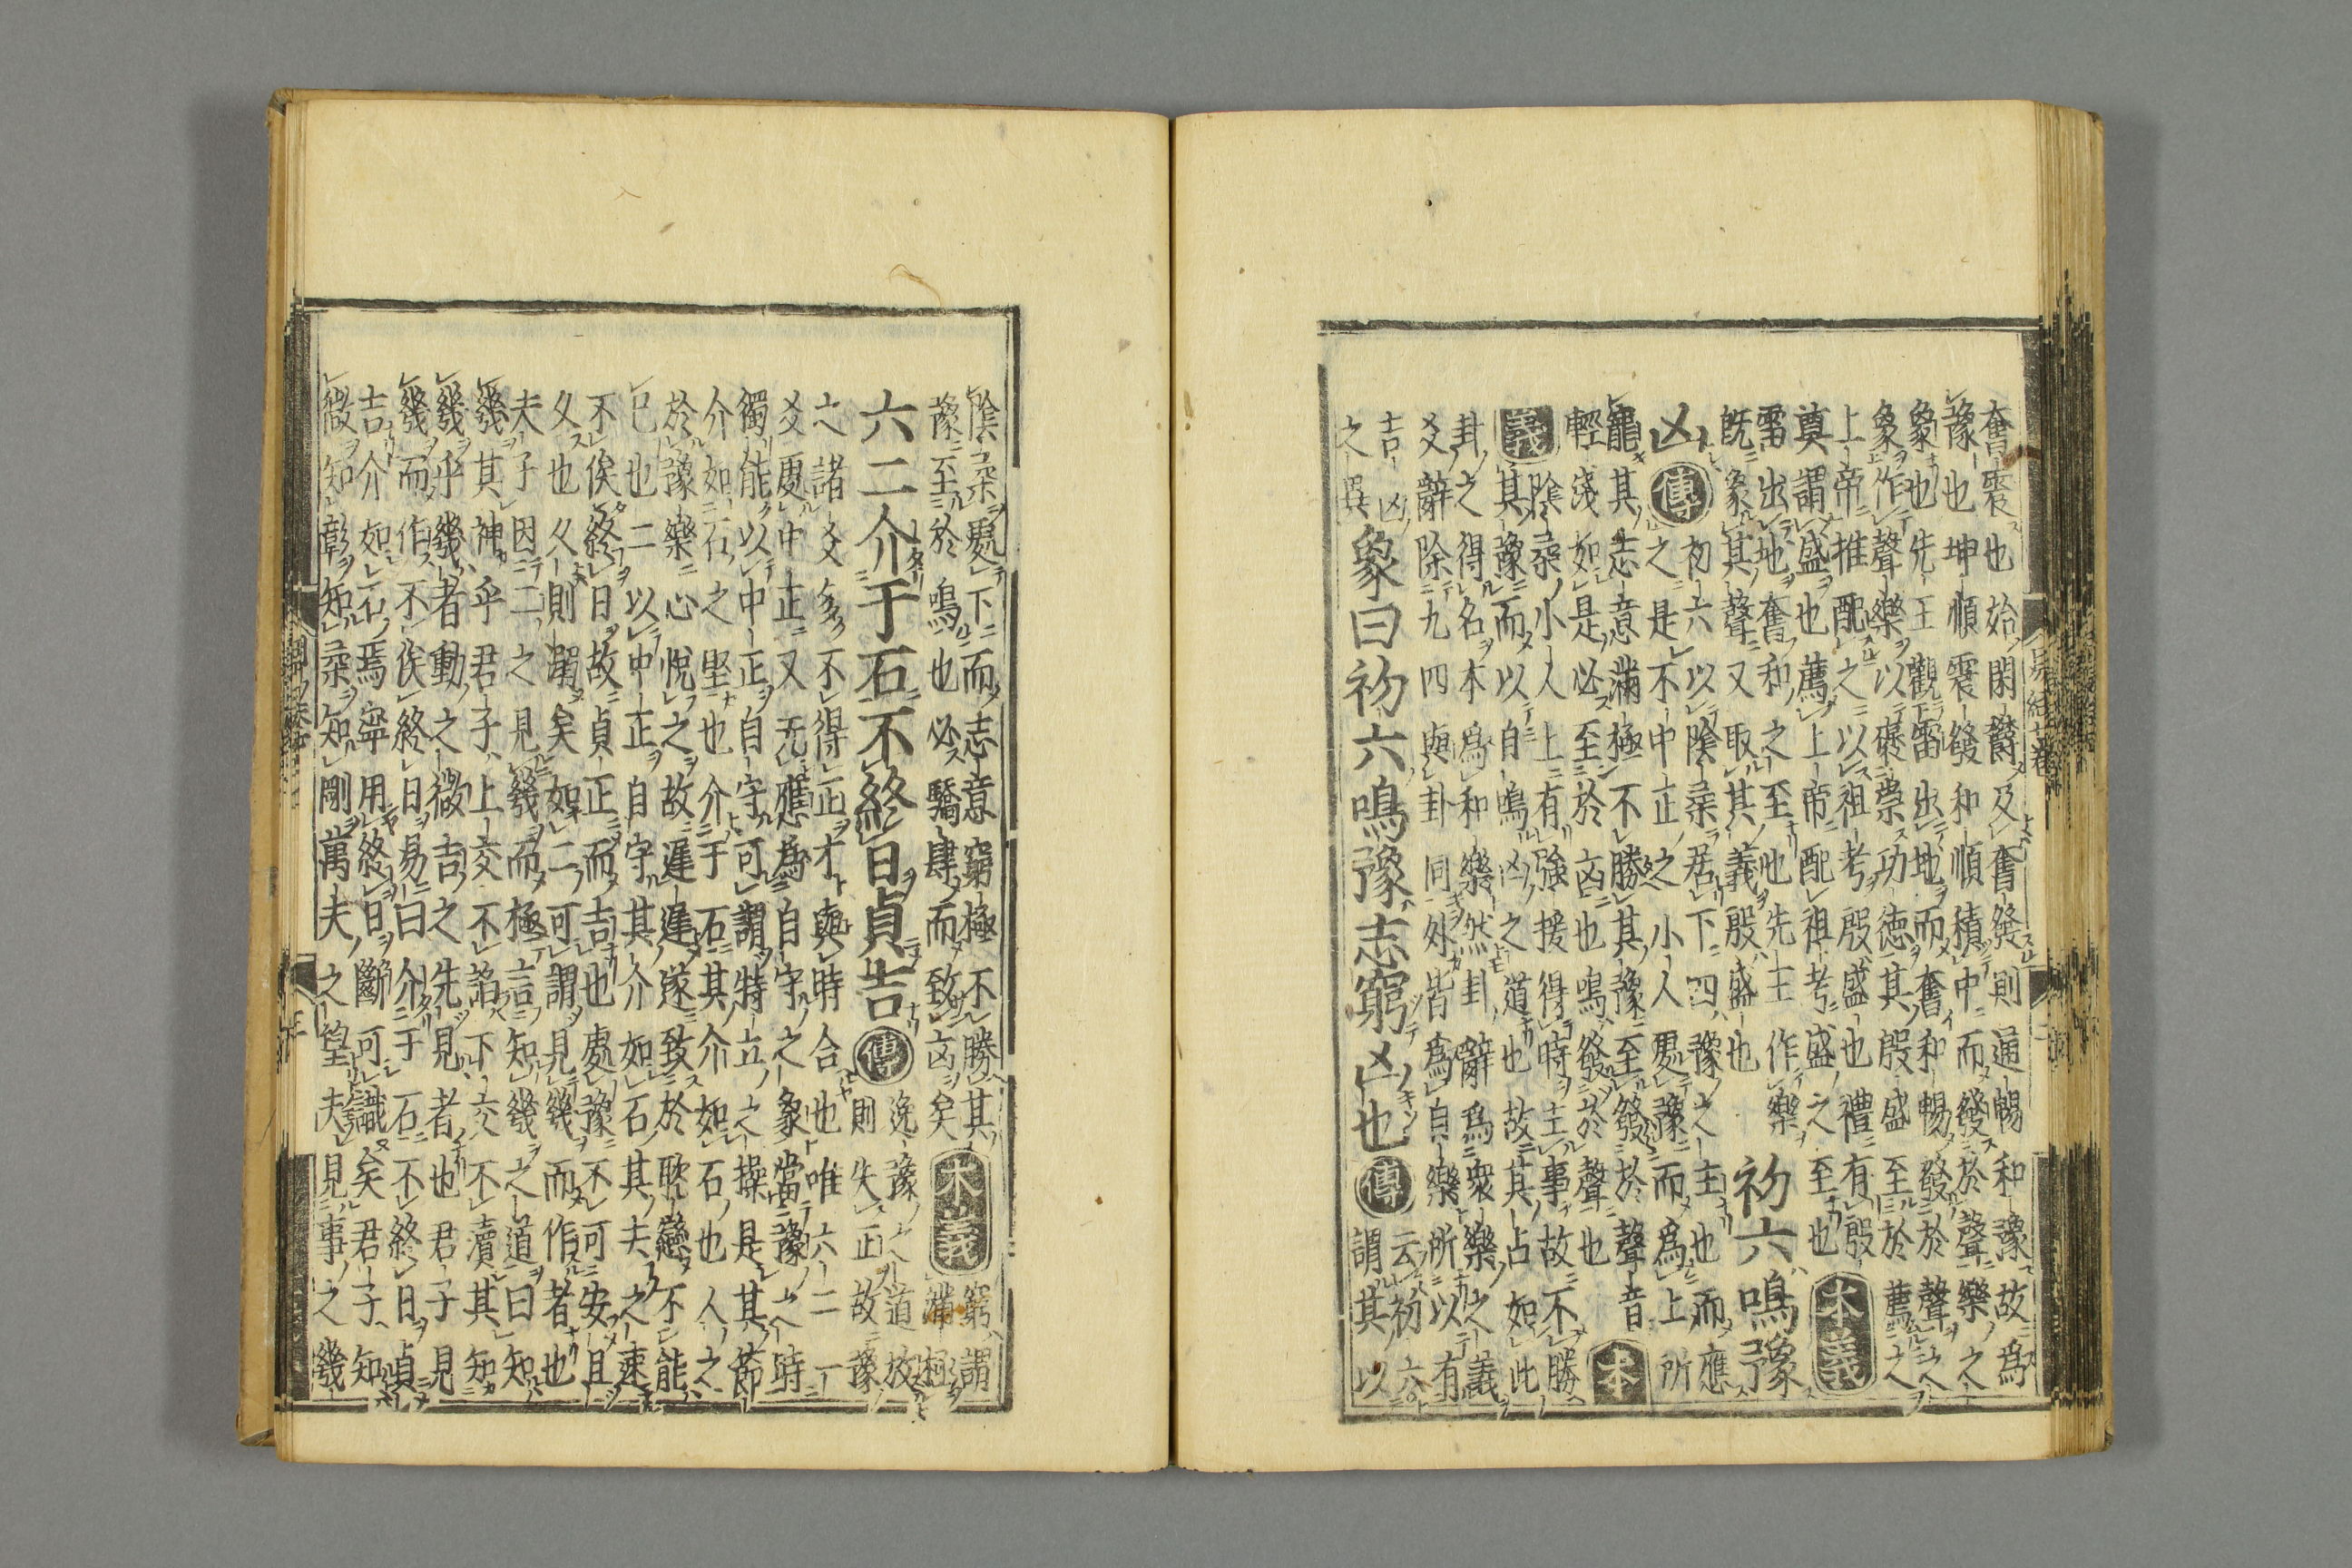 奮震也始閉鬱及奮發則通暢和豫故爲
豫也坤順震發和順積中而發於聲樂之
象也先王觀雷出地而奮和暢發於聲之
象作聲樂以褒崇功德其殷盛至於薦之
上帝推配之以祖考殷盛也禮有殷
奠謂盛也薦上帝配祖考盛之至也
本義
雷出地奮和之至也先王作樂
既象其聲又取其義殷盛也
初六鳴豫
凶
傳
初六以陰柔居下四豫之主也而應
之是不中正之小人處豫而爲上所
寵其志意滿極不勝其豫至發於聲音
輕淺如是必至於凶也鳴發於聲也
本義
陰柔小人上有強援得時主事故不勝
其豫而以自鳴凶之道也故其占如此
卦之得名本爲和樂然卦辭爲衆樂之義
爻辭除九四與卦同外皆爲自樂所以有
吉凶
之異
象曰初六鳴豫志窮凶也
傳
云初六
謂其以
陰柔處下而志意窮極不勝其
豫至於鳴也必驕肆而致凶矣
本義
窮謂
滿極
六二介于石不終日貞吉
傳
逸豫之道放
則失正故豫
之諸爻多不得正才與時合也唯六二一
爻處中正又无應爲自守之象當豫之時
獨能以中正自守可謂特立之操是其節
介如石之堅也介于石其介如石也人之
於豫樂心悅之故遲遲遂致於耽戀不能
已也二以中正自守其介如石其夫之速
不俟終日故貞正而吉也處豫不可安且
久也久則溺矣如二可謂見幾而作者也
夫子因二之見幾而極言知幾之道曰知
幾其神乎君子上交不諂下交不瀆其知
幾乎幾者動之微吉之先見者也君子見
幾而作不俟終日易曰介于石不終日貞
吉介如石焉寧用終日斷可識矣君子知
微知彰知柔知剛萬夫之望夫見事之幾